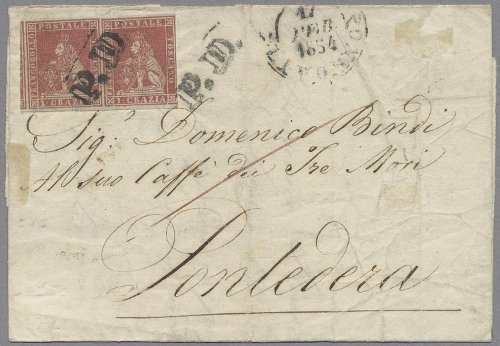 POSTALE POSTALE
FRANCOBOLLO TOSCANO
1 GRAZIA 1 GRAZIA
P.D P.D.
17
FEB.
1854
Sig.r Domenico Bindi
Al suo Caffè dei Tre Mori
Pontedera